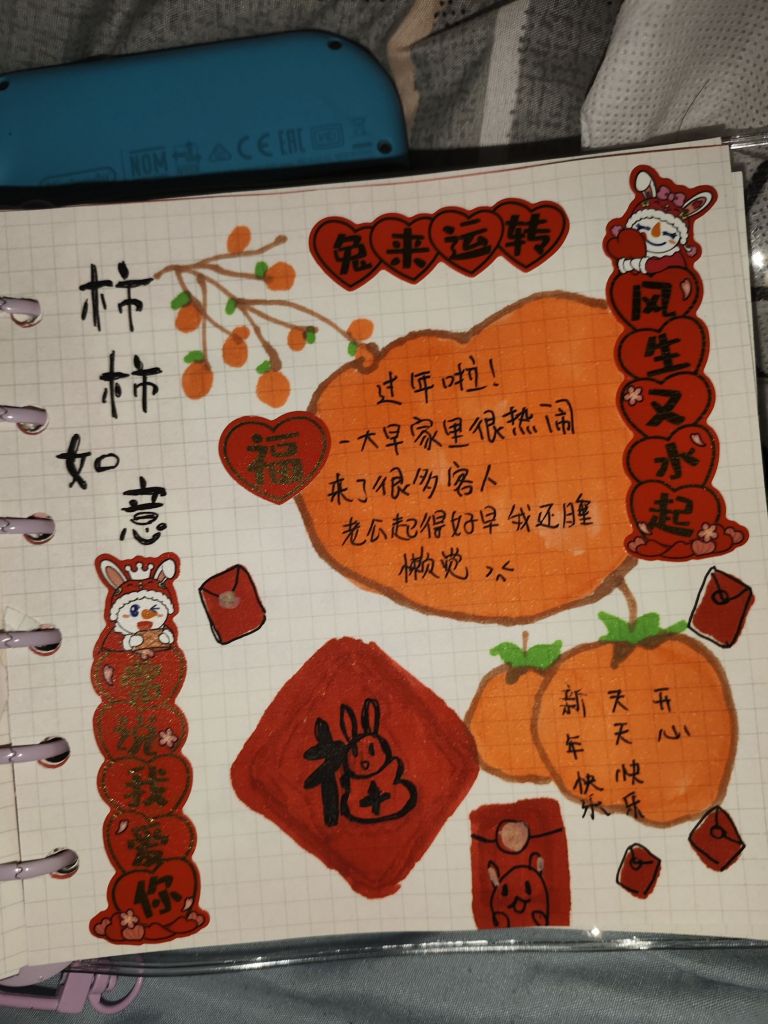 NOM CE EAC
柿柿如意
兔来运转
风生又水起
过年啦！
一大早家里很热闹
来了很多客人
老公起得好早 我还睡
懒觉
福
常说我爱你
福
新年快乐
天天快乐
开心